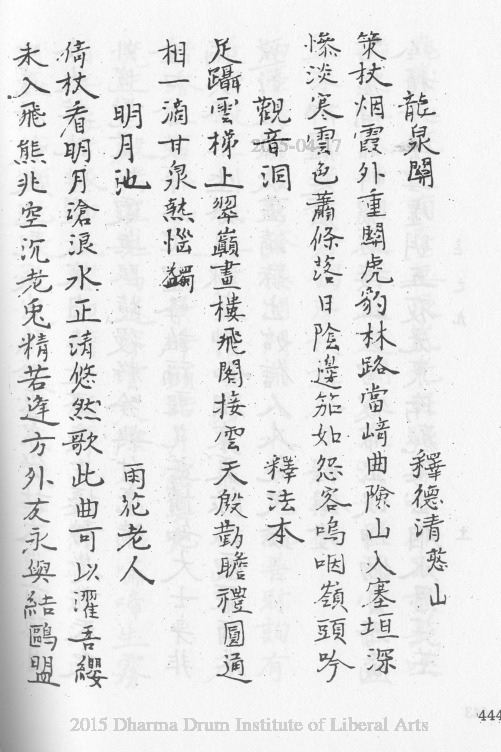 龍泉關　釋德清憨山
策杖烟霞外重關虎豹林路當崎曲險山入塞垣深
慘淡寒雲色蕭條落日陰邊笳如怨客嗚咽嶺頭吟
觀音洞　釋法本
足躡雲梯上翠巔畫樓飛閣接雲天殷勤瞻禮圓通
相一滴甘泉熱惱蠲
明月池　雨花老人
倚杖看明月滄浪水正清悠然歌此曲可以濯吾纓
未入飛熊兆空沉老兎精若逢方外友永與結鷗盟
444
2015-04-17
2015 Dharma Drum Institute of Liberal Arts